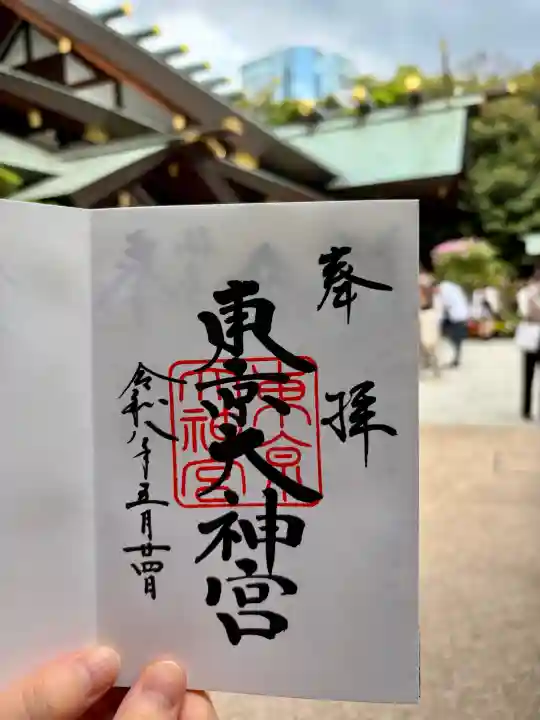 奉拝
東京大神宮
東京大神宮
令和八年五月廿四日